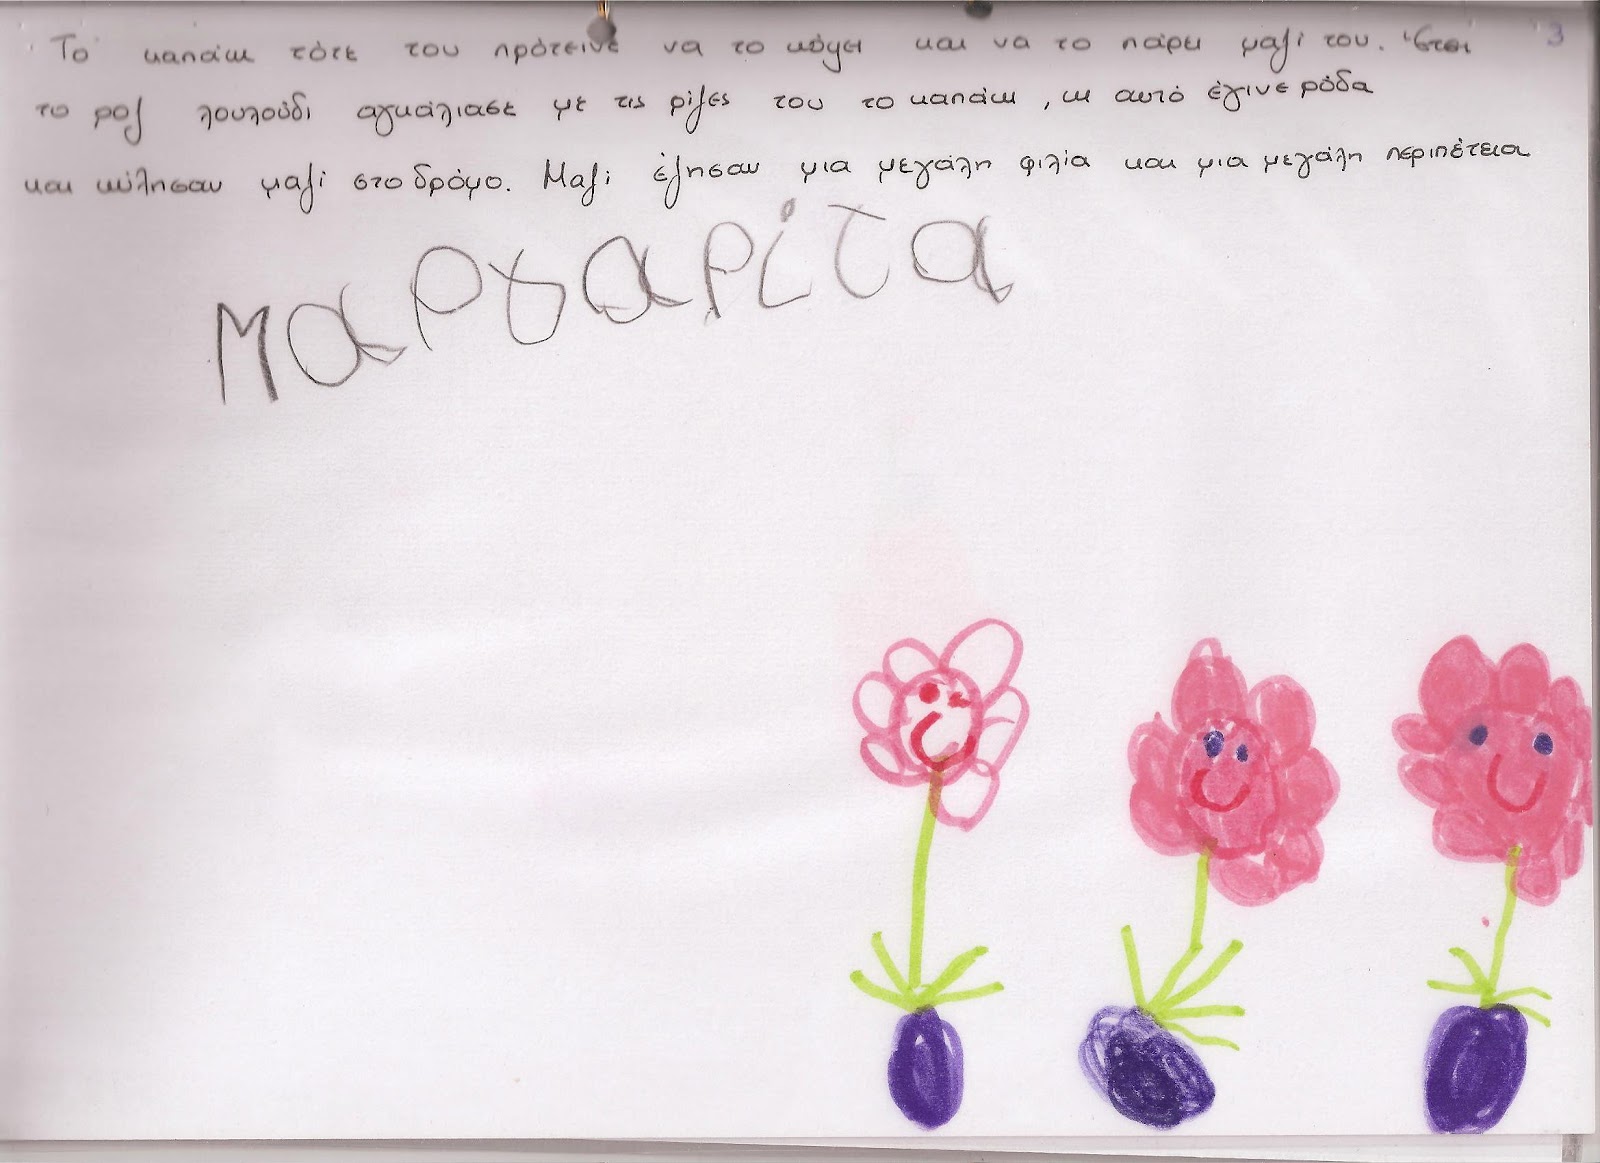 Το καπάκι τότε του πρότεινε να το κόψει και να το πάρει μαζί του. Έτσι 3
το ροζ λουλούδι αγκάλιασε με τις ρίζες του το καπάκι, κι αυτό έγινε ρόδα
και κύλησαν μαζί στο δρόμο. Μαζί έζησαν μια μεγάλη φιλία και μια μεγάλη περιπέτεια
Μαργαρίτα